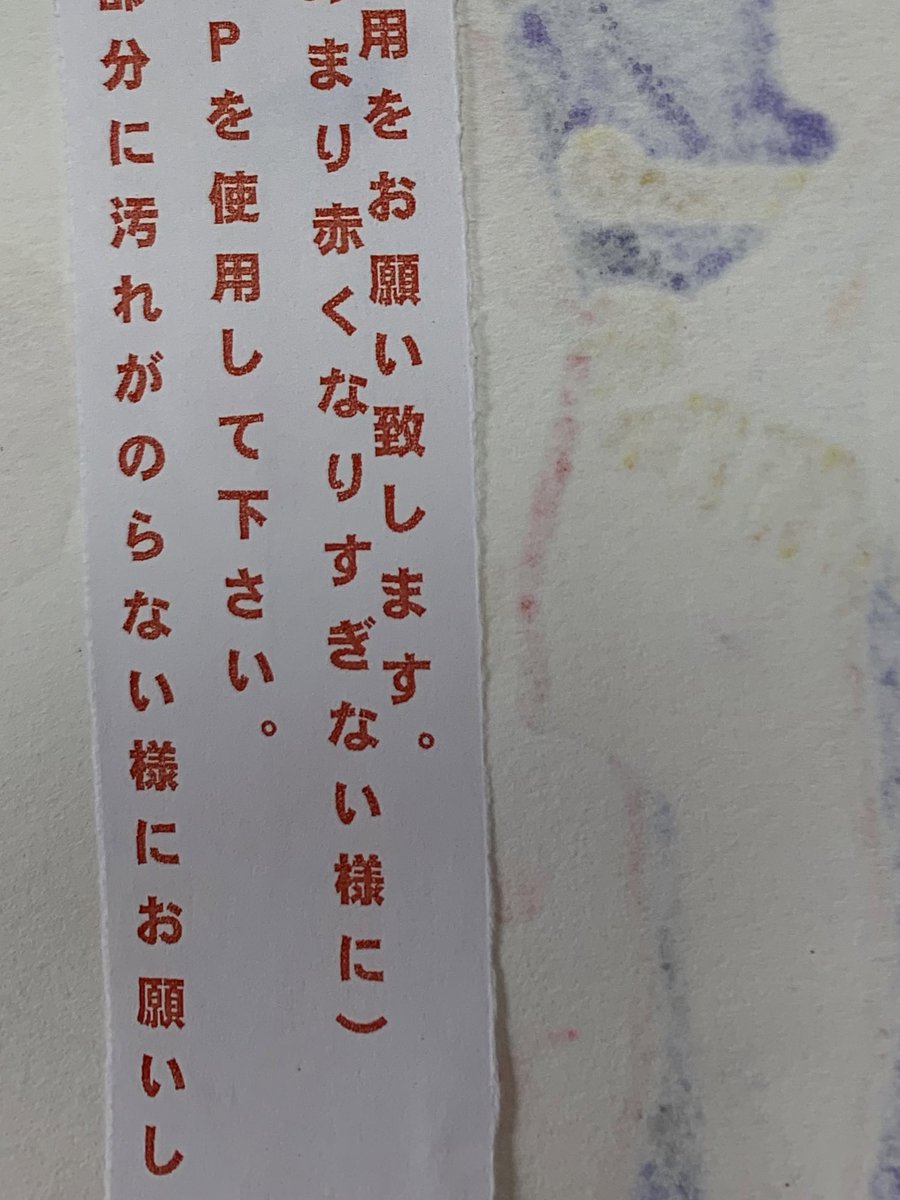 用をお願い致します。
まり赤くなりすぎない様に)
Pを使用して下さい。
部分に汚れがのらない様にお願いし